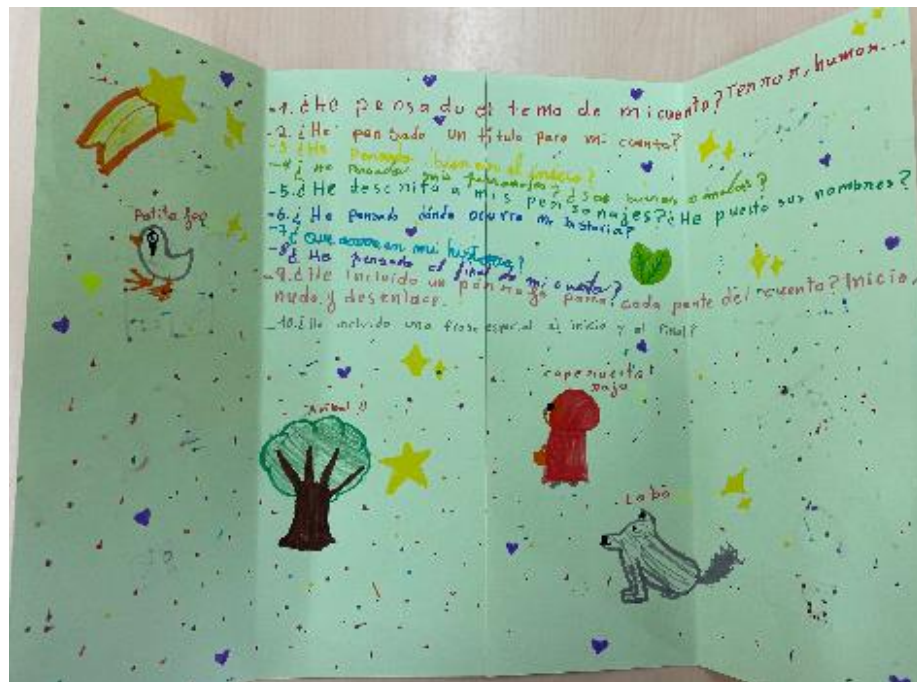 -1. ¿He pensado el tema de mi cuento? Terror, humor...
-2. ¿He pensado un título para mi cuento?
-3 ¿He Pensado bien en el inicio?
-4 ¿He Pensado mis personajes? ¿Son buenos o malos?
-5. ¿He descrito a mis personajes? ¿He puesto sus nombres?
-6. ¿He Pensado dónde ocurre mi historia?
-7 ¿Que ocurre en mi historia?
-8 ¿He pensado el final de mi cuento?
-9. ¿He incluido un párrafo para cada parte del cuento? Inicio,
nudo, y desenlace.
-10. ¿He incluido una frase especial al inicio y al final?
Patito feo
caperucita
roja
Lobo